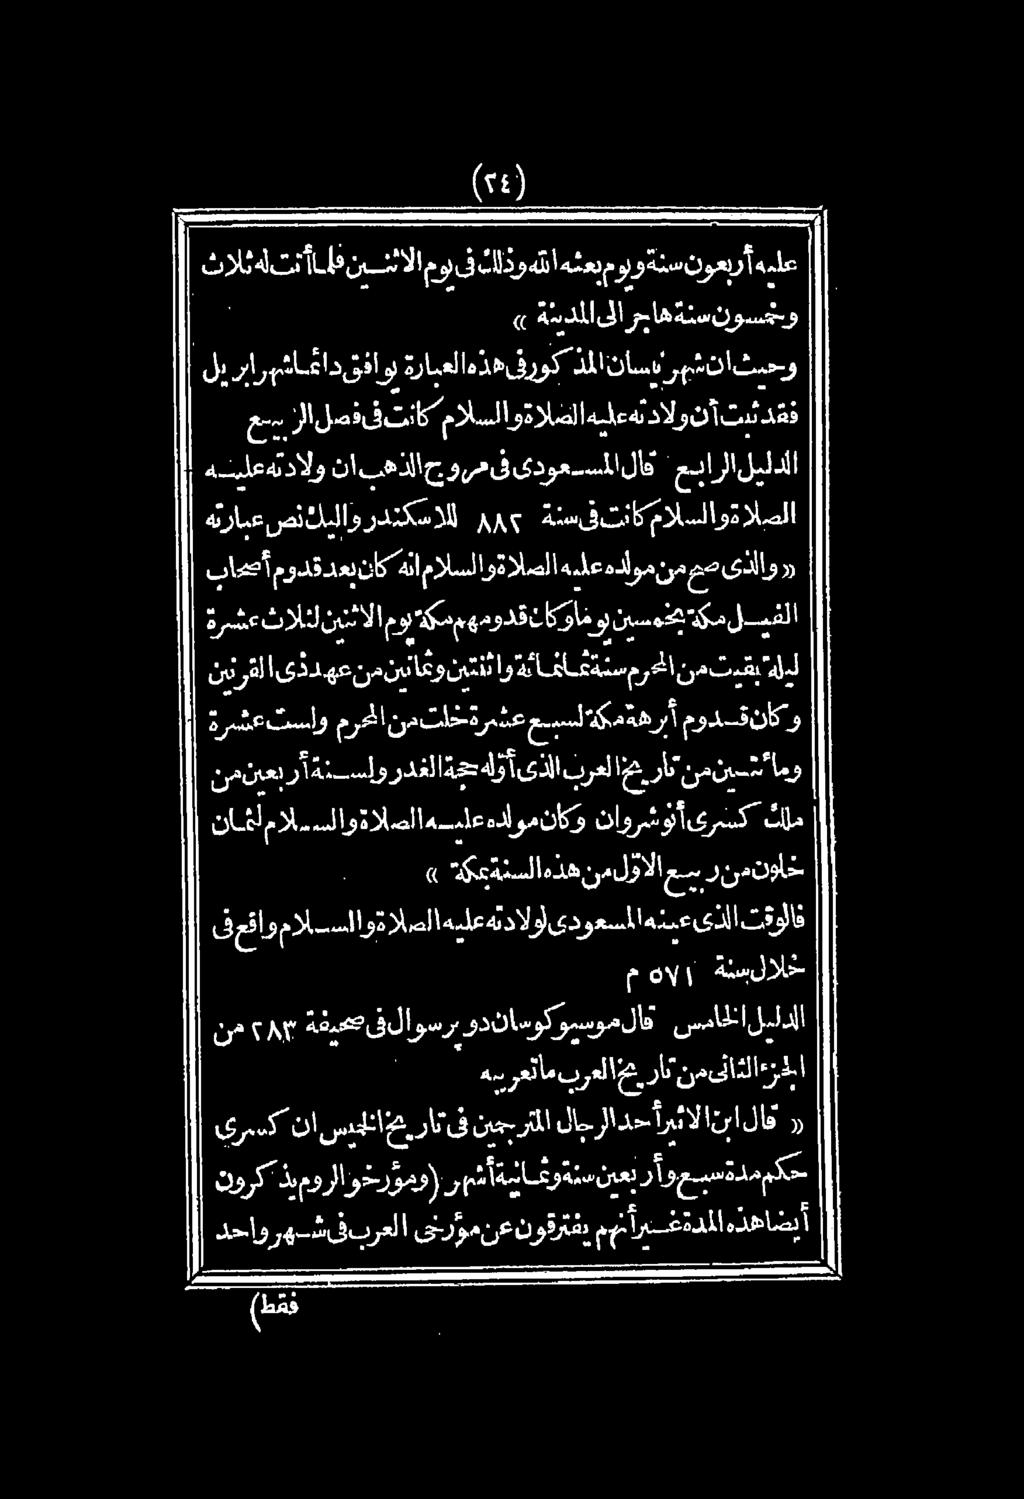 (٣٤)
عليه أربعون سنة ويوم بعثه الله وذلك في يوم الاثنين فلما أتت له ثلاث
وخمسون سنة هاجر الى المدينة »
وحيث ان شهر نيسان المذكور في هذه العبارة يوافق دائما شهر ابريل
فقد ثبت أن ولادته عليه الصلاة والسلام كانت في فصل الربيع
الدليل الرابع قال المسعودى في مروج الذهب ان ولادته عليه
الصلاة والسلام كانت في سنة ٨٨٢ للاسكندر واليك نص عبارته
« والذى صح من مولده عليه الصلاة والسلام انه كان بعد قدوم أصحاب
الفيل مكة بخمسين يوما وكان قدومهم مكة يوم الاثنين لثلاث عشرة
ليلة بقيت من المحرم سنة ثمانمائة واثنتين وثمانين من عهد ذى القرنين
وكان قدوم أبرهة مكة لسبع عشرة خلت من المحرم ولست عشرة
ومائتين من تاريخ العرب الذى أوّله حجة الغدر ولسنة أربعين من
ملك كسرى أنوشروان وكان مولده عليه الصلاة والسلام لثمان
خلون من ربيع الاوّل من هذه السنة بمكة »
فالوقت الذى عينه المسعودى لولادته عليه الصلاة والسلام واقع في
خلال سنة ٥٧١ م
الدليل الخامس قال موسيو كوسان دو برسوال في صحيفة ٢٨٣ من
الجزء الثانى من تاريخ العرب ما تعريبه
« قال ابن الاثير أحد الرجال المترجمين في تاريخ الخميس ان كسرى
حكم مدة سبع وأربعين سنة وثمانية أشهر (ومؤرخو الروم يذكرون
أيضا هذه المدة غير أنهم يفترقون عن مؤرخى العرب في شهر واحد
فقط)